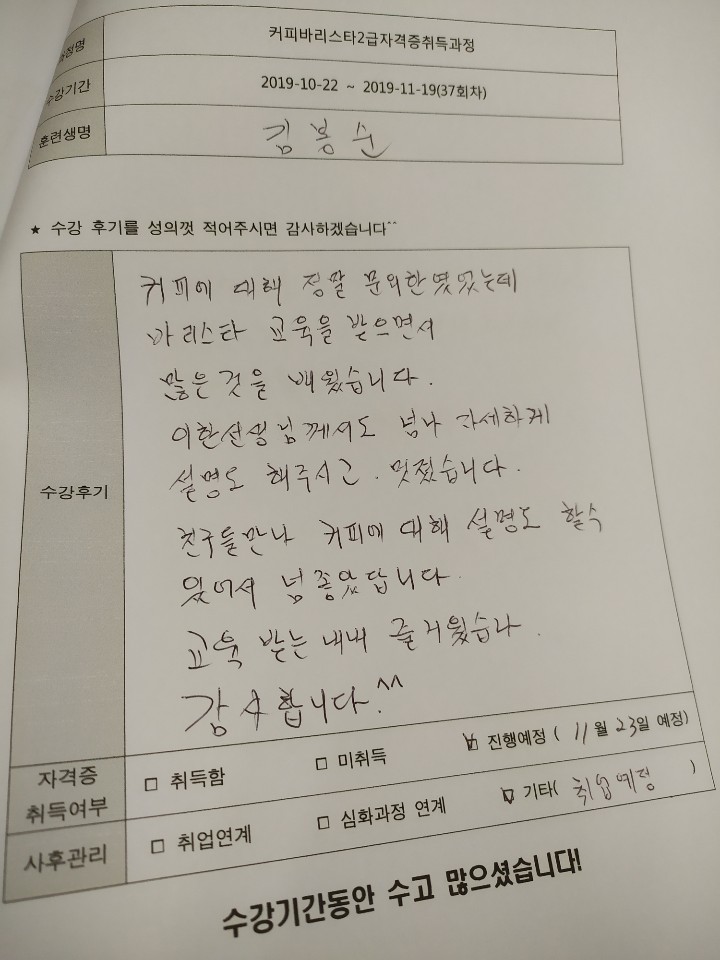 과정명 커피바리스타2급자격증취득과정
수강기간 2019-10-22 ~ 2019-11-19(37회차)
훈련생명 김봉순
★ 수강 후기를 성의껏 적어주시면 감사하겠습니다^^
수강후기
커피에 대해 정말 문외한였었는데
바리스타 교육을 받으면서
많은것을 배웠습니다.
이한선생님께서도 넘나 자세하게
설명도 해주시고. 멋졌습니다.
친구들만나 커피에 대해 설명도 할수
있어서 넘좋았답니다.
교육 받는내내 즐거웠습다.
감사합니다.^^
자격증 취득여부 □ 취득함 □ 미취득 ☑ 진행예정 ( 11월 23일 예정)
사후관리 □ 취업연계 □ 심화과정 연계 ☑ 기타( 취업예정 )
수강기간동안 수고 많으셨습니다!